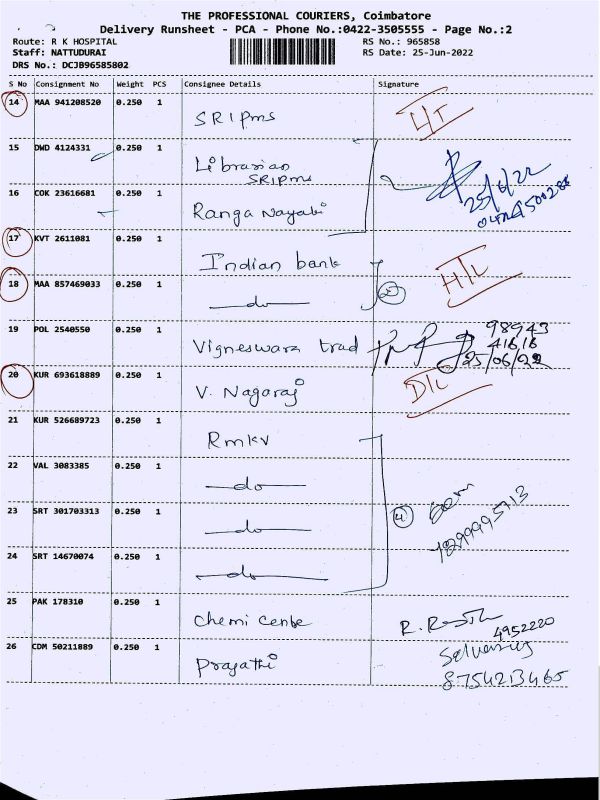 THE PROFESSIONAL COURIERS, Coimbatore
Delivery Runsheet - PCA - Phone No.:0422-3505555 - Page No.:2
Route: R K HOSPITAL RS No.: 965858
Staff: NATTUDURAI RS Date: 25-Jun-2022
DRS No.: DCJB96585802
S No Consignment No Weight PCS Consignee Details Signature
14 MAA 941208520 0.250 1 SRIPMS
15 DWD 4124331 0.250 1 Librarian
SRIPMS
25/6/22
16 COK 23616681 0.250 1 Ranga Nayaki
17 KVT 2611081 0.250 1 Indian bank
18 MAA 857469033 0.250 1 —do— 2
19 POL 2540550 0.250 1 Vigneswara trad
98943
41616
25/06/22
20 KUR 693618889 0.250 1 V. Nagaraj D/L
21 KUR 526689723 0.250 1 RMKV
22 VAL 3083385 0.250 1 —do—
23 SRT 301703313 0.250 1 —do— 4
24 SRT 14670074 0.250 1 —do—
25 PAK 178310 0.250 1 Chemi Cenbe
4952220
26 CDM 50211889 0.250 1 Prajathi
8754213465